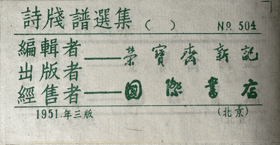 詩牋譜選集( ) No. 504
編輯者
出版者——榮寶齋新記
經售者——國際書店
1951.年三版 (北京)